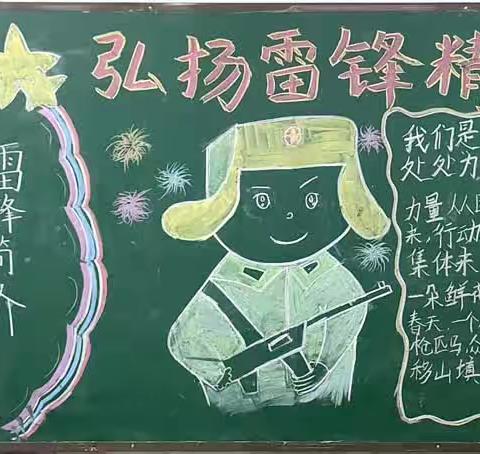 弘扬雷锋精
雷锋简介
我们是
处处为
力量从
来,行动
集体来
一朵鲜
春天,一个
枪匹马,众
移山填